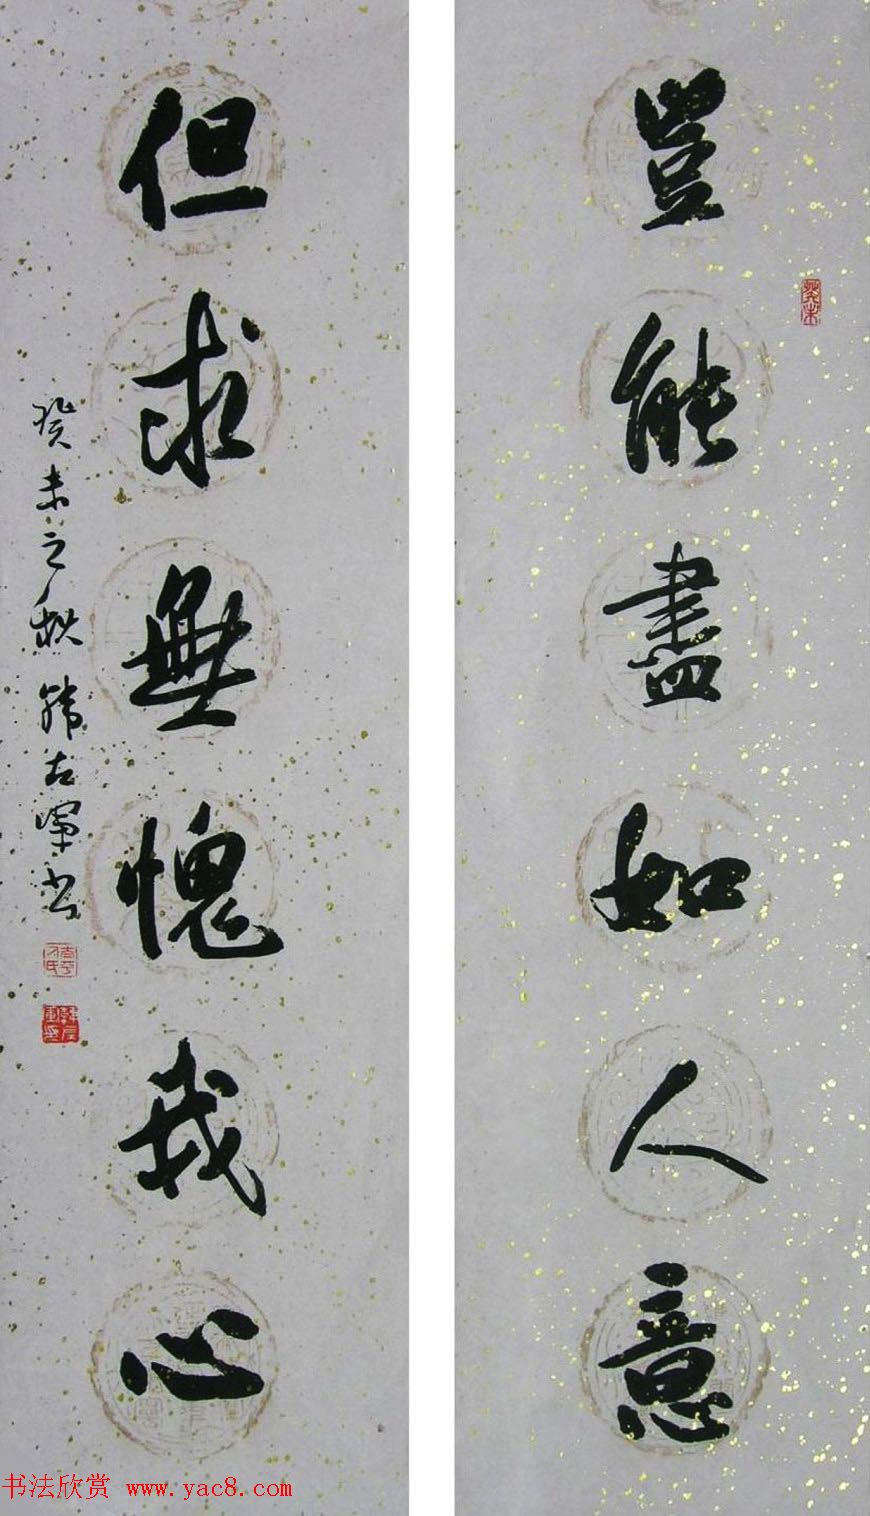 豈能盡如人意
但求無愧我心
癸未之秋 韓左軍书
癸未
书法欣赏 www.yac8.com